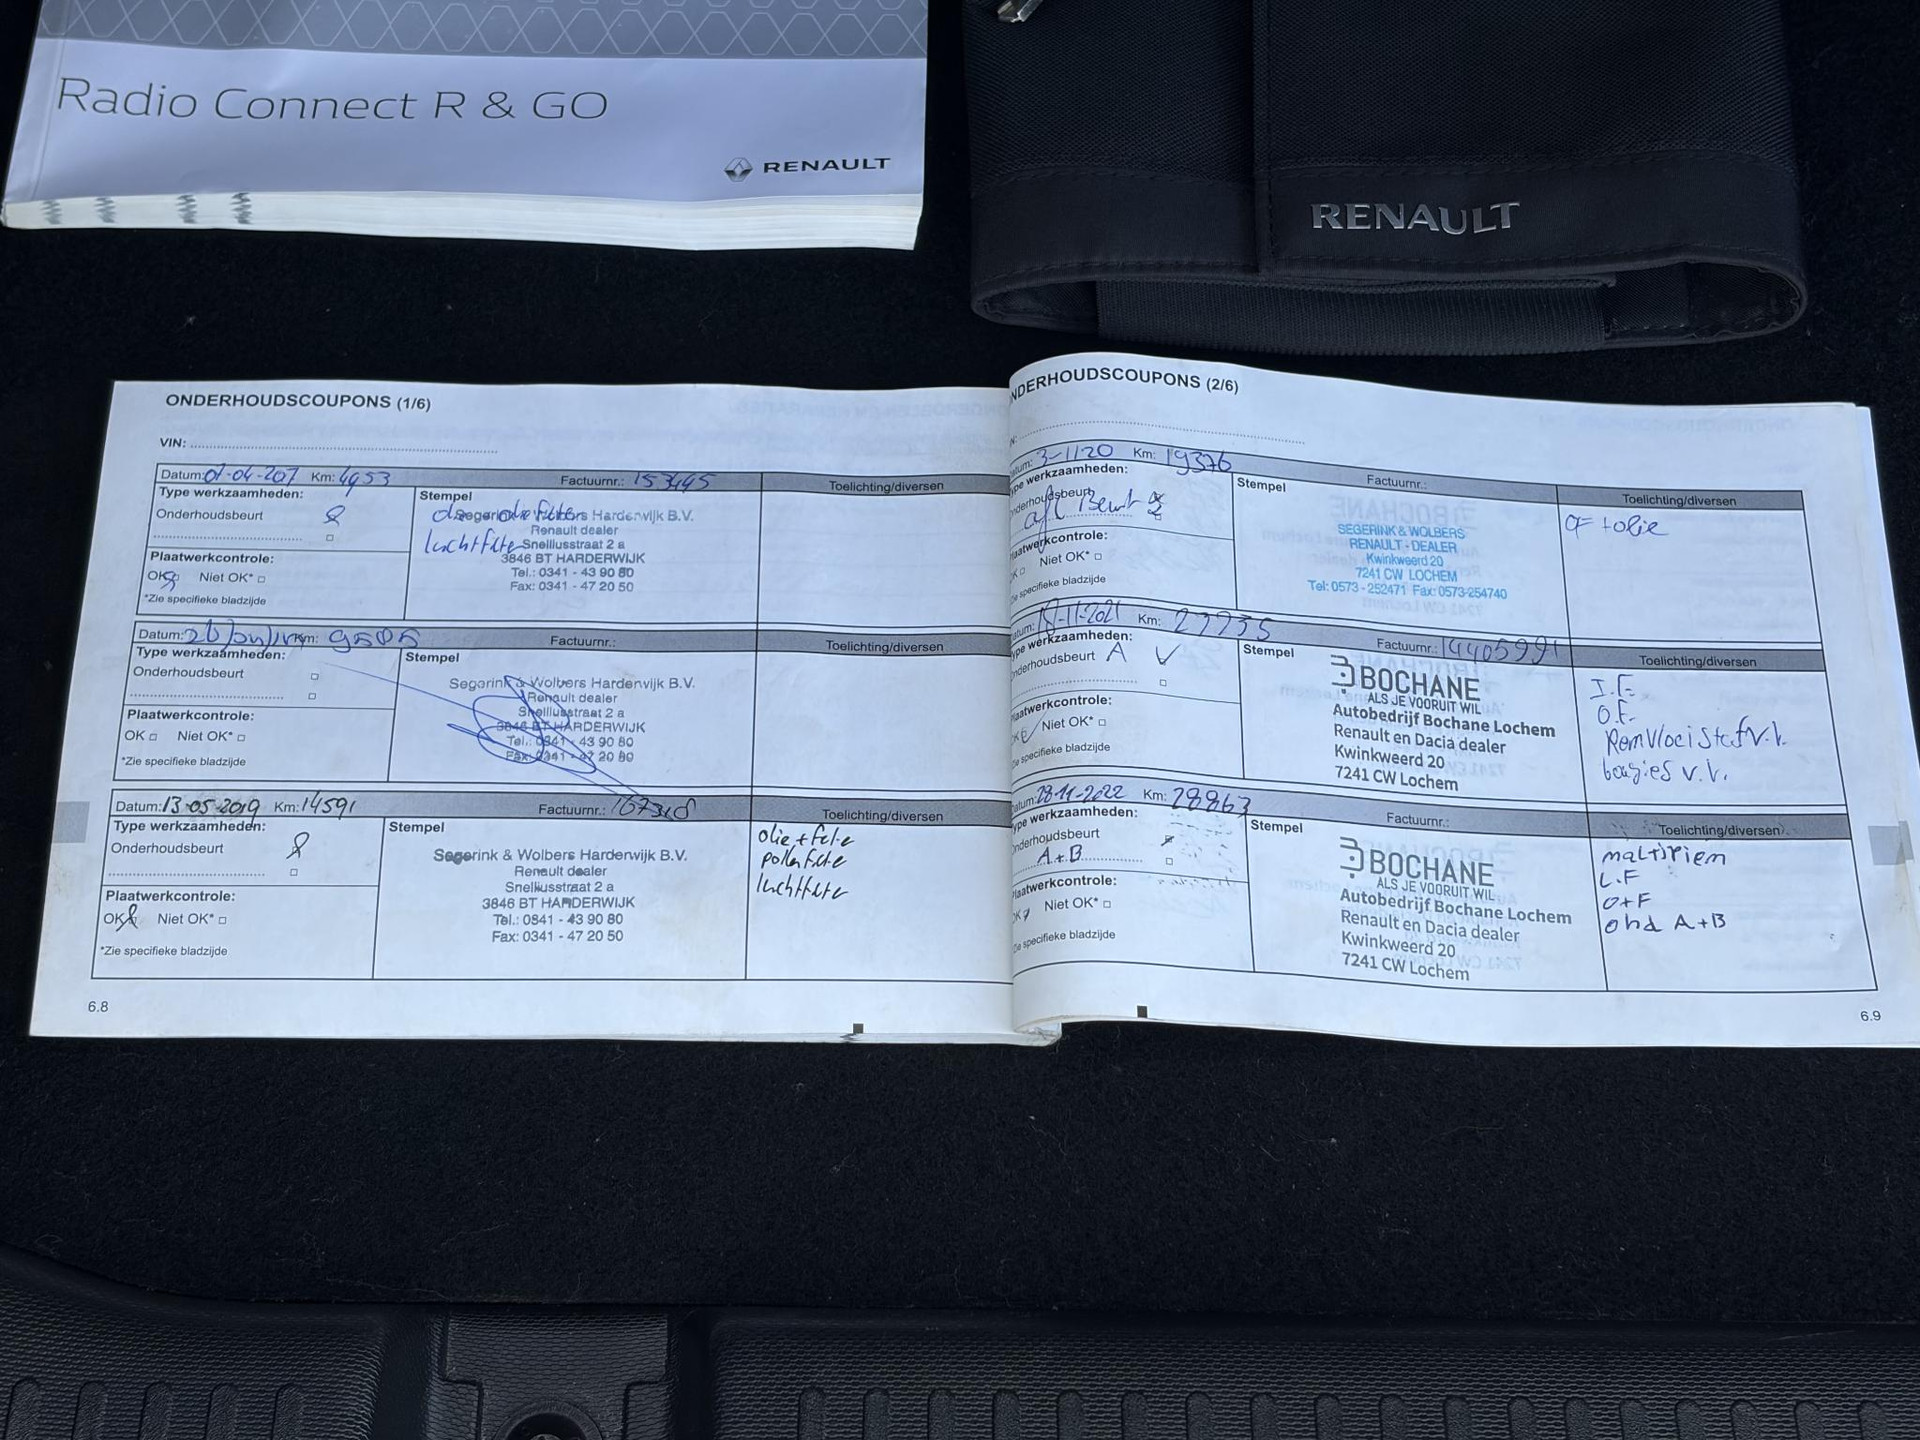 Radio Connect R & GO
RENAULT
RENAULT
ONDERHOUDSCOUPONS (1/6)
VIN:
Datum: 01-04-207 Km: 4953 Factuurnr.: 153495
Type werkzaamheden:
Stempel
Toelichting/diversen
Onderhoudsbeurt
Segerink & Wolbers Harderwijk B.V.
Renault dealer
luchtfilter
Snelliusstraat 2 a
3846 BT HARDERWIJK
Tel.: 0341 - 43 90 80
Fax: 0341 - 47 20 50
Plaatwerkcontrole:
OK Niet OK*
*Zie specifieke bladzijde
Datum: Km: 9505 Factuurnr.:
Type werkzaamheden:
Stempel
Toelichting/diversen
Onderhoudsbeurt
Segerink & Wolbers Harderwijk B.V.
Renault dealer
Snelliusstraat 2 a
3846 BT HARDERWIJK
Tel.: 0341 - 43 90 80
Fax: 0341 - 47 20 80
Plaatwerkcontrole:
OK Niet OK*
*Zie specifieke bladzijde
Datum: 13-05-2019 Km: 14591 Factuurnr.: 167318
Type werkzaamheden:
Stempel
Toelichting/diversen
Onderhoudsbeurt
Segerink & Wolbers Harderwijk B.V.
Renault dealer
Snelliusstraat 2 a
3846 BT HARDERWIJK
Tel.: 0841 - 43 90 80
Fax: 0341 - 47 20 50
olie + filte
pollenfilte
luchtfilte
Plaatwerkcontrole:
OK Niet OK*
*Zie specifieke bladzijde
6.8
NDERHOUDSCOUPONS (2/6)
N:
atum: 3-1120 Km: 19376 Factuurnr.:
ype werkzaamheden:
Stempel
Toelichting/diversen
nderhoudsbeurt
afl Beurt
SEGERINK & WOLBERS
RENAULT - DEALER
Kwinkweerd 20
7241 CW LOCHEM
Tel: 0573 - 252471 Fax: 0573-254740
OF + olie
laatwerkcontrole:
K Niet OK*
Zie specifieke bladzijde
atum: 18-11-2021 Km: 23735 Factuurnr.: 4405991
ype werkzaamheden:
Stempel
Toelichting/diversen
nderhoudsbeurt A
BOCHANE
ALS JE VOORUIT WIL
Autobedrijf Bochane Lochem
Renault en Dacia dealer
Kwinkweerd 20
7241 CW Lochem
I.F.
O.F.
Remvloeistof v.v.
bougies v.v.
laatwerkcontrole:
K Niet OK*
Zie specifieke bladzijde
atum: 28-11-2022 Km: 28863 Factuurnr.:
ype werkzaamheden:
Stempel
Toelichting/diversen
nderhoudsbeurt
A+B
BOCHANE
ALS JE VOORUIT WIL
Autobedrijf Bochane Lochem
Renault en Dacia dealer
Kwinkweerd 20
7241 CW Lochem
multiriem
L.F
O+F
ohd A+B
laatwerkcontrole:
K Niet OK*
Zie specifieke bladzijde
6.9